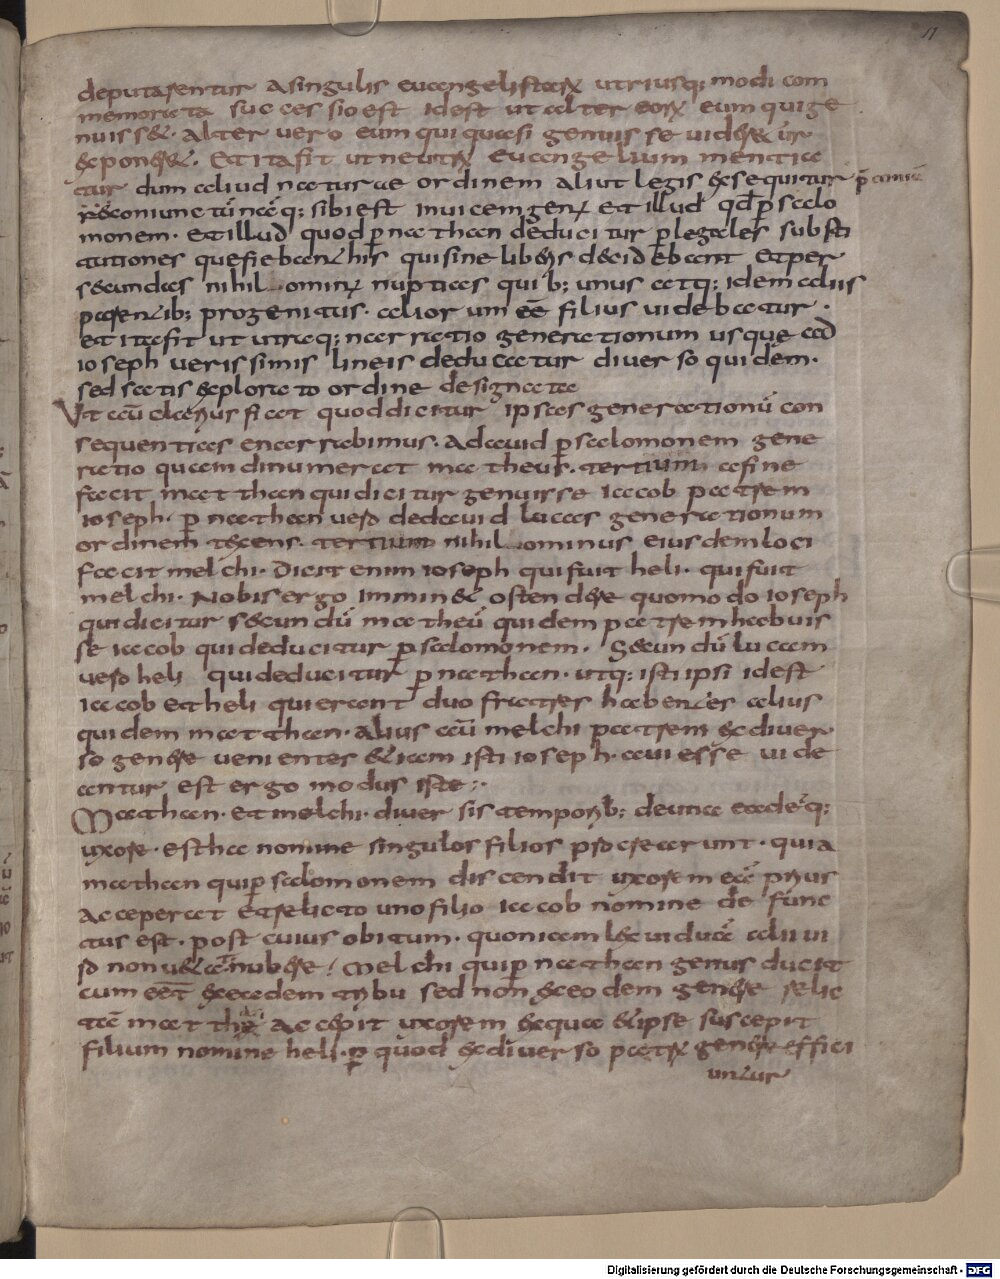 11
deputarentur a singulis euangelistarꝝ utriusq; modi com
memorata successio est idest ut alter eorꝝ eum qui ge
nuiss&. alter uero eum qui quasi genuisse uider&ur
exponer&. Et ita fit ut neutrꝝ euangelium mentia
tur dum aliud naturae ordinem aliut legis exsequitur
coniunctū naq; sibi est inuicem genꝰ et illud qđ ꝑ salo
monem. et illud quod ꝑ nathan deducitur ꝑ legales substi
tutiones que fiebant his qui sine liberis decidebant et per
secundas nihil ominꝰ nuptias quib; unus atq; idem aliis
parentib; progenitus. aliorum eē filius uidebatur.
et ita fit ut utraq; narratio generationum usque ad
ioseph uerissimis lineis deducatur diuerso quidem.
sed satis explorato ordine designata
Ut aū clarius fiat quod dicitur ipsas generationū con
sequentias enarrabimus. a dauid ꝑ salomonem gene
ratio quam dinumerat matheus. tertium a fine
facit matthan qui dicitur genuisse iacob patrem
ioseph. ꝑ nathan uero de dauid lucas generationum
ordinem texens. tertium nihil ominus eiusdem loci
facit melchi. Dicit enim ioseph qui fuit heli. qui fuit
melchi. Nobis ergo imminet ostendere quomodo ioseph
qui dicitur secundū matheū quidem patrem habuis
se iacob qui deducitur ꝑ salomonem. secundū lucam
uero heli qui deducitur ꝑ nathan. utq; isti ipsi idest
iacob et heli qui erant duo fratres habentes alius
quidem matthan. alius aū melchi patrem ex diuer
so genere uenientes etiam isti ioseph aui esse uide
antur est ergo modus iste:.
Matthan. et melchi. diuersis temporib; de una eademq;
uxore. estha nomine singulos filios procrearunt. quia
mathan qui ꝑ salomonem discendit uxorem eā prius
acceperat et relicto uno filio iacob nomine defunc
tus est. post cuius obitum. quoniam lex uiduā alii ui
ro non uetat nubere/ melchi qui ꝑ nathan genus ducit
cum eēt ex eadem tribu sed non ex eodem genere relic
tā matthan accepit uxorem ex qua et ipse suscepit
filium nomine heli. ꝑ quod ex diuerso patrꝝ genere effici
untur
Digitalisierung gefördert durch die Deutsche Forschungsgemeinschaft - DFG